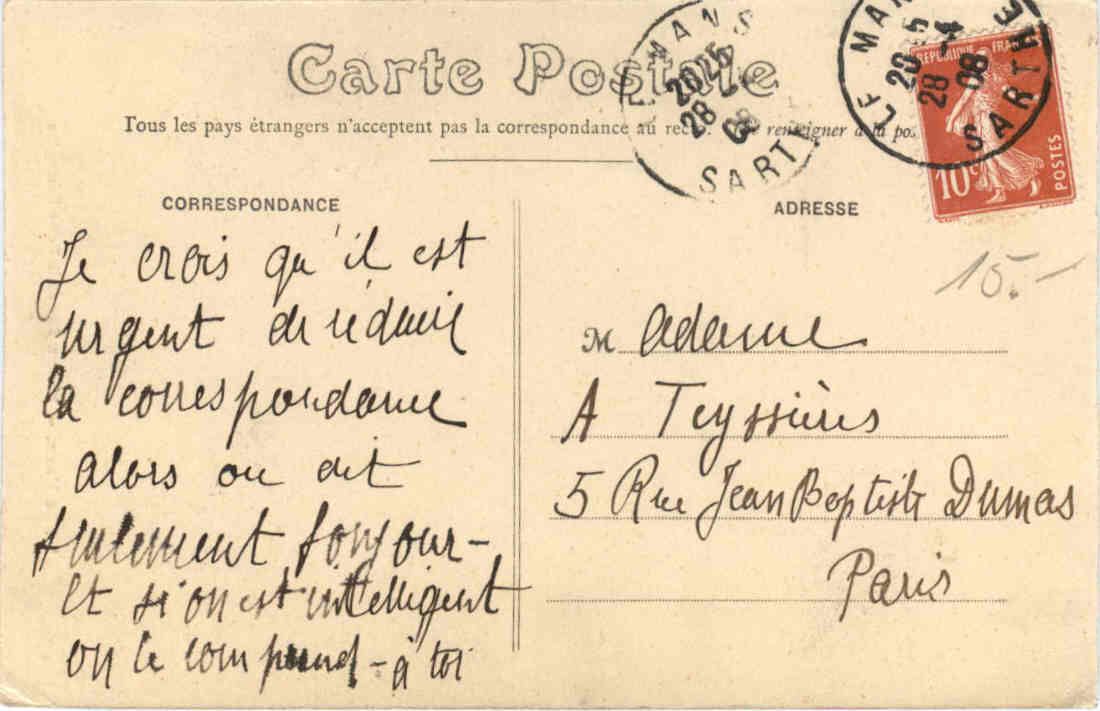 Carte Postale
Tous les pays étrangers n'acceptent pas la correspondance au recto. renseigner à la po.
LE MANS
20 25
28 -4
08
SARTHE
LE MANS
20 25
28 -4
08
SARTHE
REPUBLIQUE FRANÇ
10c
POSTES
CORRESPONDANCE
ADRESSE
15.-
Je crois qu'il est
urgent de réduire
la correspondance
alors on dit
seulement bonjour-
et si on est intelligent
on le comprend - à toi
M adame
A Teyssières
5 Rue Jean Baptiste Dumas
Paris